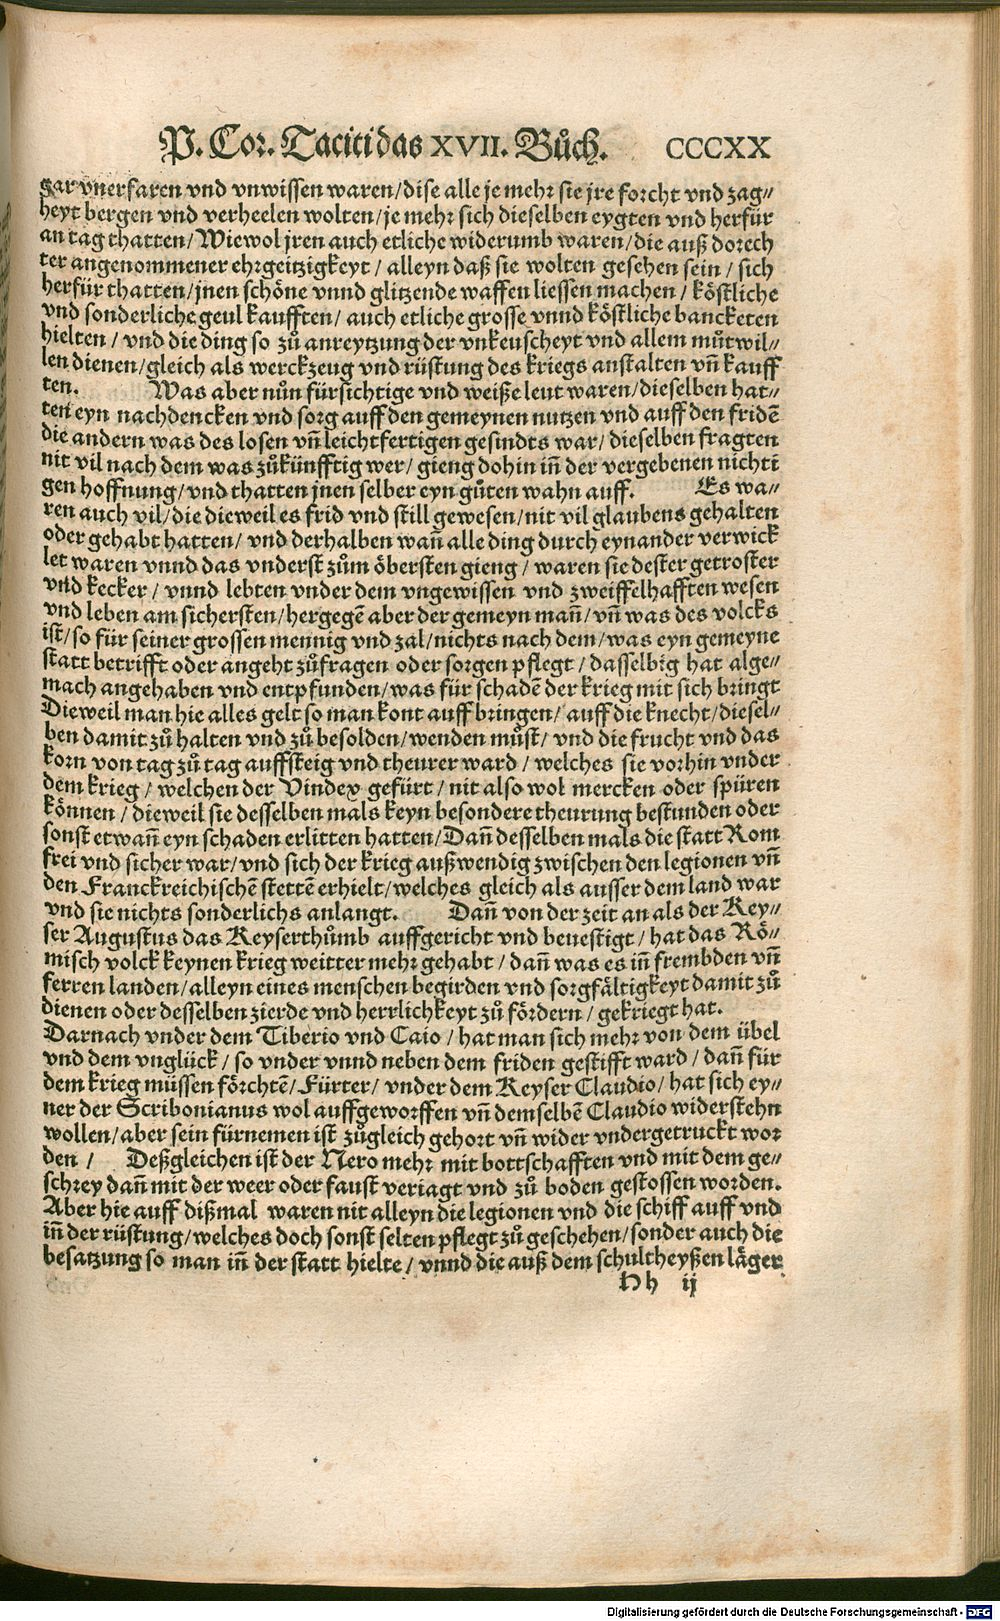 P. Cor. Taciti das XVII. Bůch. CCCXX
gar vnerfaren vnd vnwissen waren/dise alle je mehr sie jre forcht vnd zag⸗
heyt bergen vnd verheelen wolten/je mehr sich dieselben eygten vnd herfür
an tag thatten/Wiewol jren auch etliche widerumb waren/die auß dorech
ter angenommener ehrgeitzigkeyt/ alleyn daß sie wolten gesehen sein/ sich
herfür thatten/jnen schöne vnnd glitzende waffen liessen machen/ köstliche
vnd sonderliche geul kaufften/ auch etliche grosse vnnd köstliche bancketen
hielten/ vnd die ding so zů anreytzung der vnkeuscheyt vnd allem můtwil⸗
len dienen/gleich als werckzeug vnd rüstung des kriegs anstalten vñ kauff
ten. Was aber nůn fürsichtige vnd weiße leut waren/dieselben hat⸗
ten eyn nachdencken vnd sorg auff den gemeynen nutzen vnd auff den fridẽ
die andern was des losen vñ leichtfertigen gesindts war/ dieselben fragten
nit vil nach dem was zůkünfftig wer/ gieng dohin iñ der vergebenen nichti
gen hoffnung/vnd thatten jnen selber eyn gůten wahn auff. Es wa⸗
ren auch vil/die dieweil es frid vnd still gewesen/nit vil glaubens gehalten
oder gehabt hatten/ vnd derhalben wañ alle ding durch eynander verwick
let waren vnnd das vnderst zům öbersten gieng/ waren sie dester getroster
vnd kecker/ vnnd lebten vnder dem vngewissen vnd zweiffelhafften wesen
vnd leben am sichersten/hergegẽ aber der gemeyn mañ/vñ was des volcks
ist/so für seiner grossen mennig vnd zal/nichts nach dem/was eyn gemeyne
statt betrifft oder angeht zůfragen oder sorgen pflegt/ dasselbig hat alge⸗
mach angehaben vnd entpfunden/was für schadẽ der krieg mit sich bringt
Dieweil man hie alles gelt so man kont auff bringen/ auff die knecht/diesel⸗
ben damit zů halten vnd zů besolden/wenden můst/ vnd die frucht vnd das
korn von tag zů tag auffsteig vnd theurer ward/ welches sie vorhin vnder
dem krieg/ welchen der Vindex gefürt/ nit also wol mercken oder spüren
können/ dieweil sie desselben mals keyn besondere theurung bestunden oder
sonst etwañ eyn schaden erlitten hatten/Dañ desselben mals die statt Rom
frei vnd sicher war/vnd sich der krieg außwendig zwischen den legionen vñ
den Franckreichischẽ stettẽ erhielt/welches gleich als ausser dem land war
vnd sie nichts sonderlichs anlangt. Dañ von der zeit an als der Key⸗
ser Augustus das Keyserthůmb auffgericht vnd beuestigt/ hat das Rö⸗
misch volck keynen krieg weitter mehr gehabt/ dañ was es iñ frembden vñ
ferren landen/alleyn eines menschen begirden vnd sorgfältigkeyt damit zů
dienen oder desselben zierde vnd herrlichkeyt zů fördern/ gekriegt hat.
Darnach vnder dem Tiberio vnd Caio/ hat man sich mehr von dem übel
vnd dem vnglück/ so vnder vnnd neben dem friden gestifft ward/ dañ für
dem krieg müssen förchtẽ/Fürter/ vnder dem Keyser Claudio/ hat sich ey⸗
ner der Scribonianus wol auffgeworffen vñ demselbẽ Claudio widerstehn
wollen/aber sein fürnemen ist zůgleich gehort vñ wider vndergetruckt wor
den/ Deßgleichen ist der Nero mehr mit bottschafften vnd mit dem ge⸗
schrey dañ mit der weer oder faust veriagt vnd zů boden gestossen worden.
Aber hie auff dißmal waren nit alleyn die legionen vnd die schiff auff vnd
iñ der rüstung/welches doch sonst selten pflegt zů geschehen/sonder auch die
besatzung so man iñ der statt hielte/ vnnd die auß dem schultheyßen läger
Hh ij
Digitalisierung gefördert durch die Deutsche Forschungsgemeinschaft - DFG